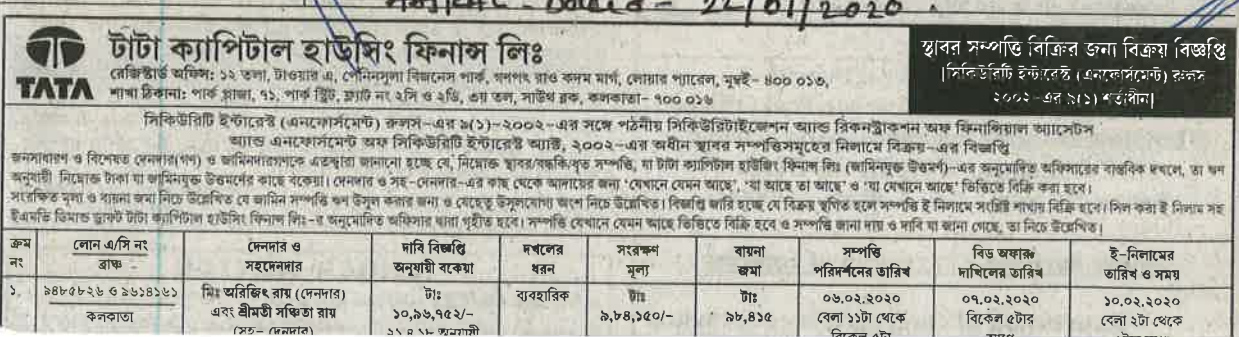 Dated - 22/01/2020.
TATA
টাটা ক্যাপিটাল হাউসিং ফিনান্স লিঃ
রেজিস্টার্ড অফিস: ১২ তলা, টাওয়ার এ, পেনিনসুলা বিজনেস পার্ক, গণপৎ রাও কদম মার্গ, লোয়ার প্যারেল, মুম্বই- ৪০০ ০১৩,
শাখা ঠিকানা: পার্ক প্লাজা, ৭১, পার্ক স্ট্রিট, ফ্ল্যাট নং ২সি ও ২ডি, ৩য় তল, সাউথ ব্লক, কলকাতা- ৭০০ ০১৬
স্থাবর সম্পত্তি বিক্রির জন্য বিক্রয় বিজ্ঞপ্তি
[সিকিউরিটি ইন্টারেস্ট (এনফোর্সমেন্ট) রুলস
২০০২-এর ৯(১) শর্তাধীন]
সিকিউরিটি ইন্টারেস্ট (এনফোর্সমেন্ট) রুলস-এর ৯(১)-২০০২-এর সঙ্গে পঠনীয় সিকিউরিটাইজেশন অ্যান্ড রিকনস্ট্রাকশন অফ ফিনান্সিয়াল অ্যাসেটস
অ্যান্ড এনফোর্সমেন্ট অফ সিকিউরিটি ইন্টারেস্ট অ্যাক্ট, ২০০২-এর অধীন স্থাবর সম্পত্তিসমূহের নিলামে বিক্রয়-এর বিজ্ঞপ্তি
জনসাধারণ ও বিশেষত দেনদার(গণ) ও জামিনদারগণকে এতদ্বারা জানানো হচ্ছে যে, নিম্নোক্ত স্থাবর/বন্ধকি/ধৃত সম্পত্তি, যা টাটা ক্যাপিটাল হাউজিং ফিনান্স লিঃ (জামিনযুক্ত উত্তমর্ণ)-এর অনুমোদিত অফিসারের বাস্তবিক দখলে, তা ঋণ
অনুযায়ী নিম্নোক্ত টাকা যা জামিনযুক্ত উত্তমর্ণের কাছে বকেয়া। দেনদার ও সহ-দেনদার-এর কাছ থেকে আদায়ের জন্য 'যেখানে যেমন আছে', 'যা আছে তা আছে' ও 'যা যেখানে আছে' ভিত্তিতে বিক্রি করা হবে।
সংরক্ষিত মূল্য ও বায়না জমা নিচে উল্লেখিত যে জামিন সম্পত্তি ঋণ উসুল করার জন্য ও যেহেতু উসুলযোগ্য অংশ নিচে উল্লেখিত। বিজ্ঞপ্তি জারি হচ্ছে যে বিক্রয় স্থগিত হলে সম্পত্তি ই নিলামে সংশ্লিষ্ট শাখায় বিক্রি হবে। সিল করা ই নিলাম সহ
ইএমডি ডিমান্ড ড্রাফট টাটা ক্যাপিটাল হাউসিং ফিনান্স লিঃ-র অনুমোদিত অফিসার দ্বারা গৃহীত হবে। সম্পত্তি যেখানে যেমন আছে ভিত্তিতে বিক্রি হবে ও সম্পত্তি জানা দায় ও দাবি যা জানা গেছে, তা নিচে উল্লেখিত।
ক্রম নং
লোন এ/সি নং
ব্রাঞ্চ
দেনদার ও
সহদেনদার
দাবি বিজ্ঞপ্তি
অনুযায়ী বকেয়া
দখলের
ধরন
সংরক্ষণ
মূল্য
বায়না
জমা
সম্পত্তি
পরিদর্শনের তারিখ
বিড অফারঃ
দাখিলের তারিখ
ই-নিলামের
তারিখ ও সময়
১.
৯৪৮৫৮২৬ ও ৯৬১৪১৬১
কলকাতা
মিঃ অরিজিৎ রায় (দেনদার)
এবং শ্রীমতী সঞ্চিতা রায়
(সহ- দেনদার)
টাঃ
১০,৯৬,৭৫২/-
ব্যবহারিক
টাঃ
৯,৮৪,১৫০/-
টাঃ
৯৮,৪১৫
০৬.০২.২০২০
বেলা ১১টা থেকে
বিকেল ৫টা
০৭.০২.২০২০
বিকেল ৫টার
১০.০২.২০২০
বেলা ২টা থেকে